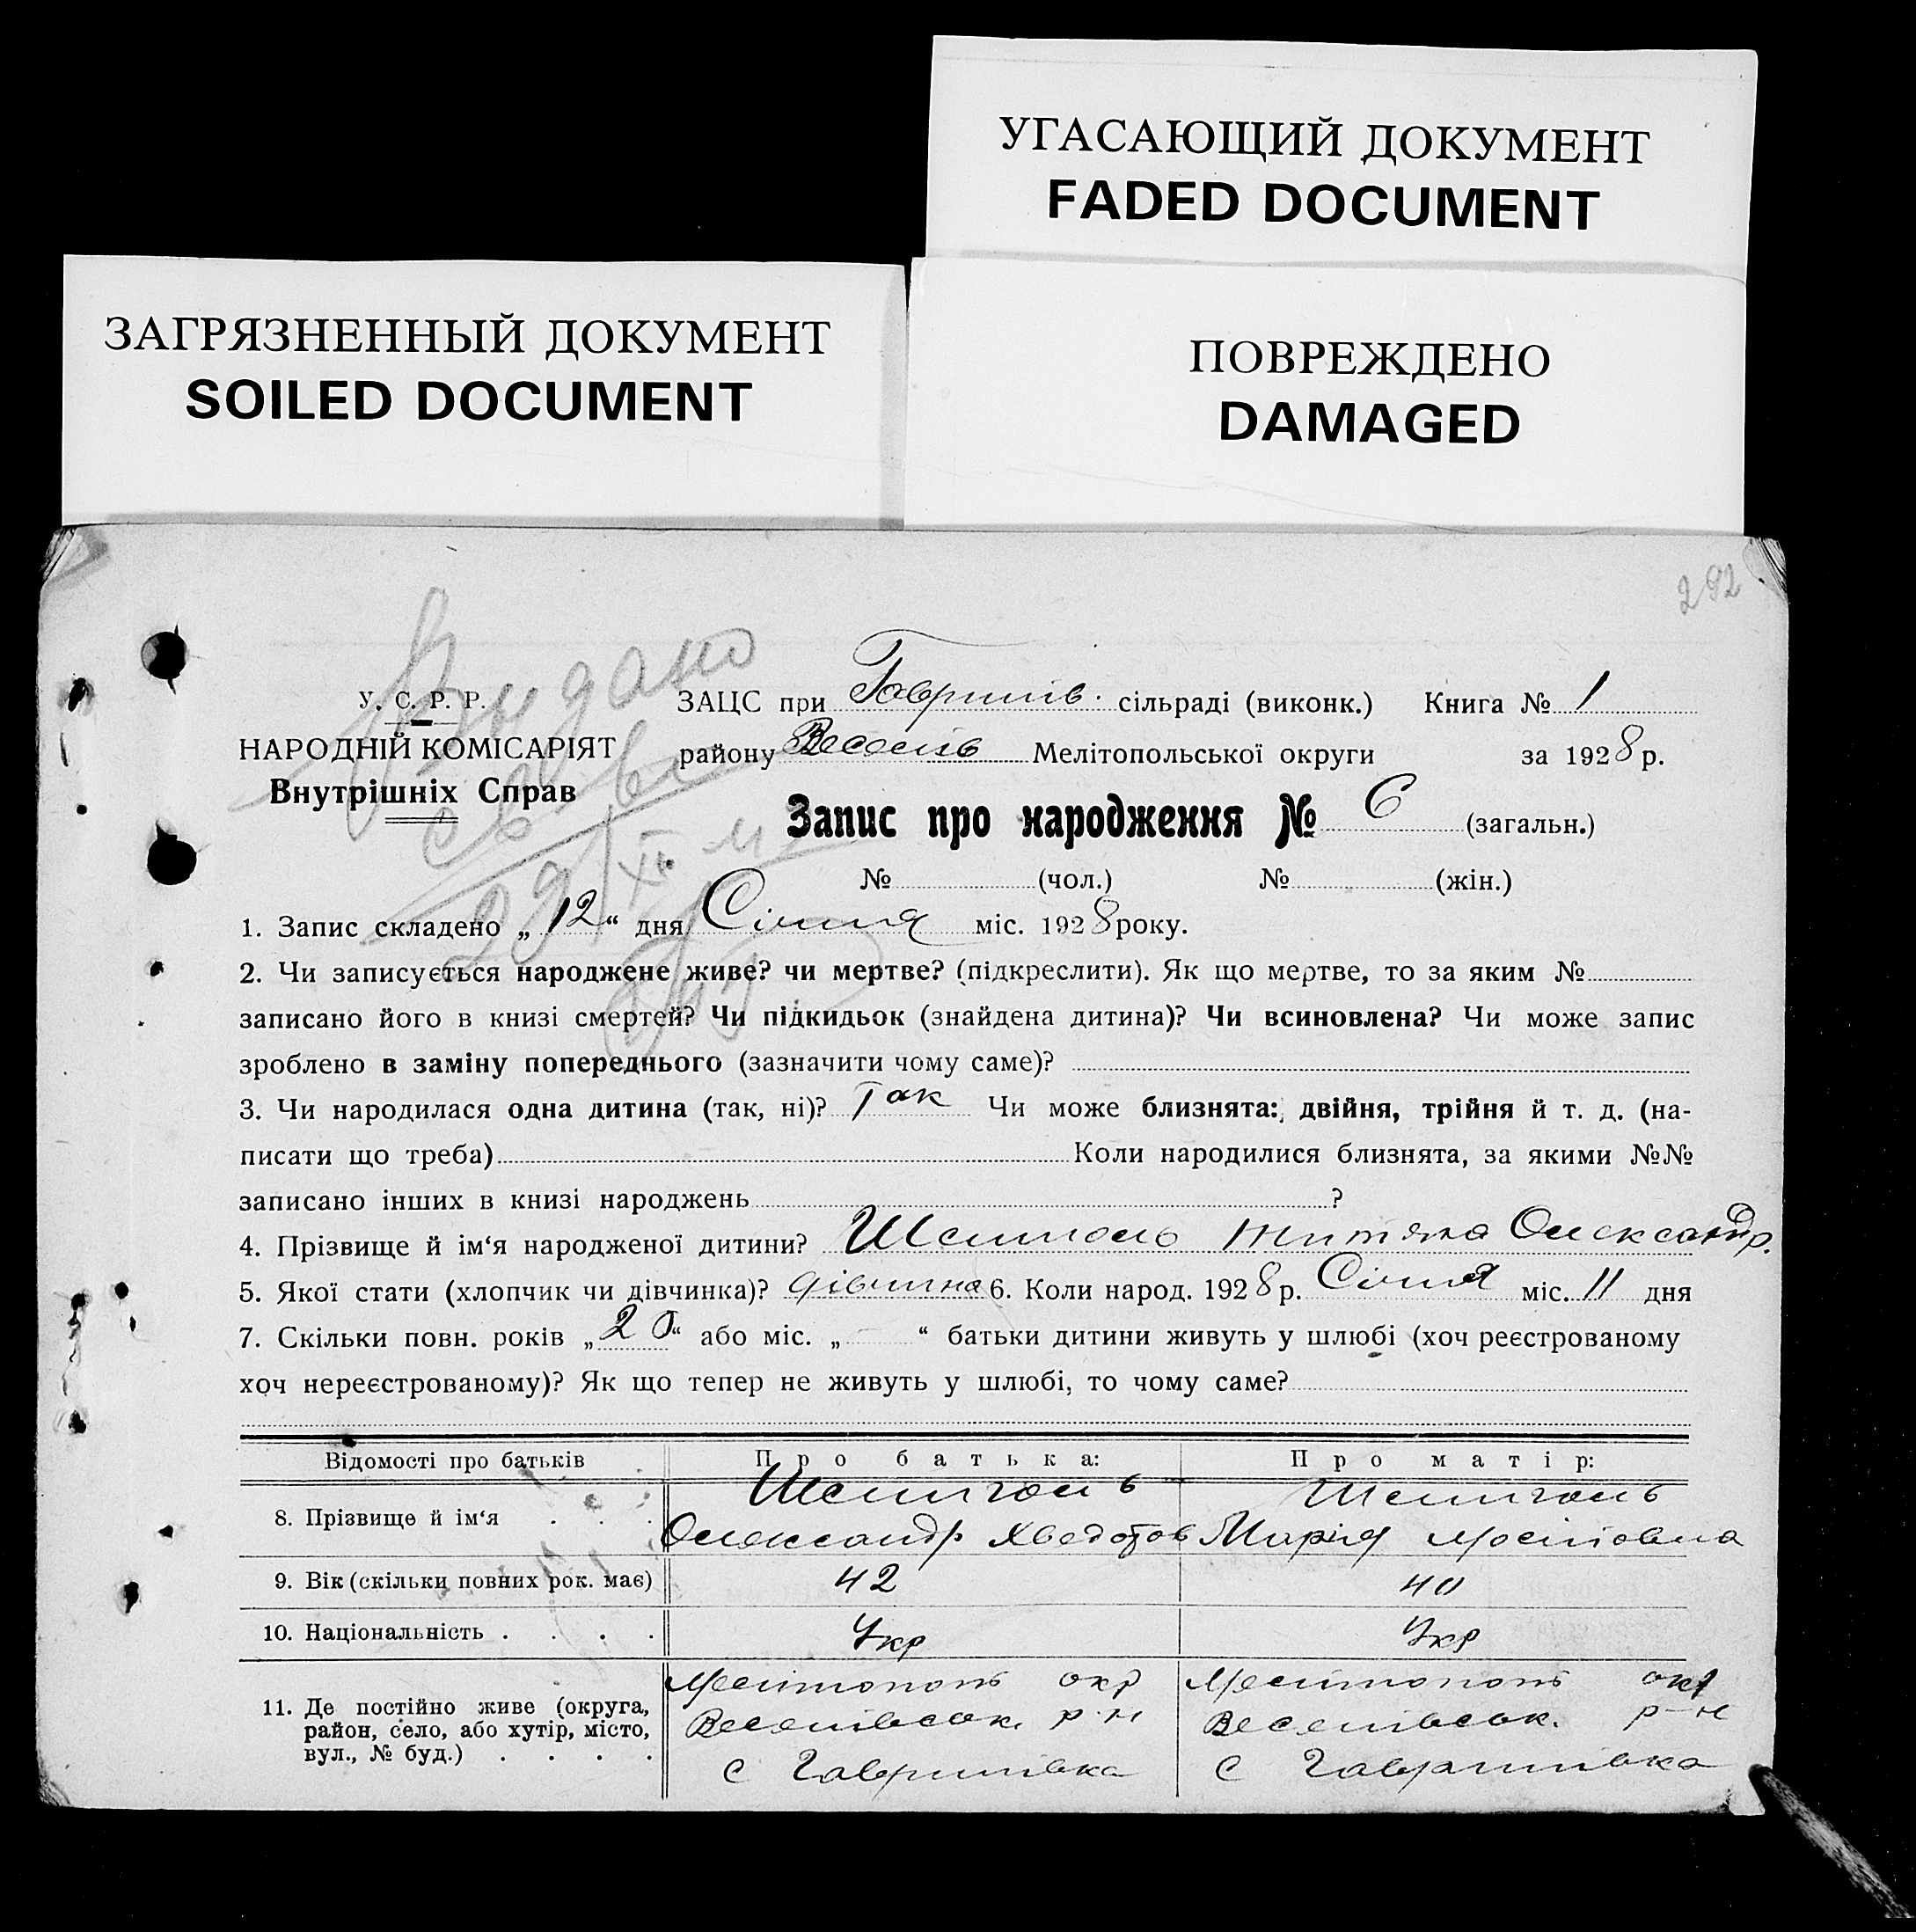 УГАСАЮЩИЙ ДОКУМЕНТ
FADED DOCUMENT
ЗАГРЯЗНЕННЫЙ ДОКУМЕНТ
SOILED DOCUMENT
ПОВРЕЖДЕНО
DAMAGED
292
Выдано
У. С. Р. Р.
НАРОДНІЙ КОМІСАРІЯТ
Внутрішніх Справ
ЗАЦС при Гаврилів. сільраді (виконк.) Книга № 1
району Веселів Мелітопольської округи за 1928 р.
Запис про народження № 6 (загальн.)
№ (чол.) № (жін.)
1. Запис складено „12“ дня Січня міс. 1928 року.
2. Чи записується народжене живе? чи мертве? (підкреслити). Як що мертве, то за яким №
записано його в книзі смертей? Чи підкидьок (знайдена дитина)? Чи всиновлена? Чи може запис
зроблено в заміну попереднього (зазначити чому саме)?
3. Чи народилася одна дитина (так, ні)? Так Чи може близнята: двійня, трійня й т. д. (на-
писати що треба) Коли народилися близнята, за якими №№
записано інших в книзі народжень ?
4. Прізвище й ім‘я народженої дитини? Олександр.
5. Якої стати (хлопчик чи дівчинка)? дівчина 6. Коли народ. 1928 р. Січня міс. 11 дня
7. Скільки повн. років „20“ або міс. „ — “ батьки дитини живуть у шлюбі (хоч реєстрованому
хоч нереєстрованому)? Як що тепер не живуть у шлюбі, то чому саме?
Відомості про батьків Про батька: Про матір:
8. Прізвище й ім‘я . . .
Олександр Хведотов Марія
9. Вік (скільки повних рок. має) 42 40
10. Національність . . . . Укр Укр
11. Де постійно живе (округа, район, село, або хутір, місто, вул., № буд.) . . . .
Мелітополь окр Мелітополь окр
Веселівськ. р-н Веселівськ. р-н
с Гаврилівка с Гаврилівка